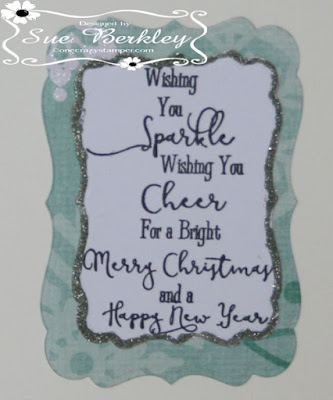 Designed by
Sue Berkley
Onecrazystamper.com
Wishing
You
Sparkle
Wishing You
Cheer
For a Bright
Merry Christmas
and a
Happy New Year